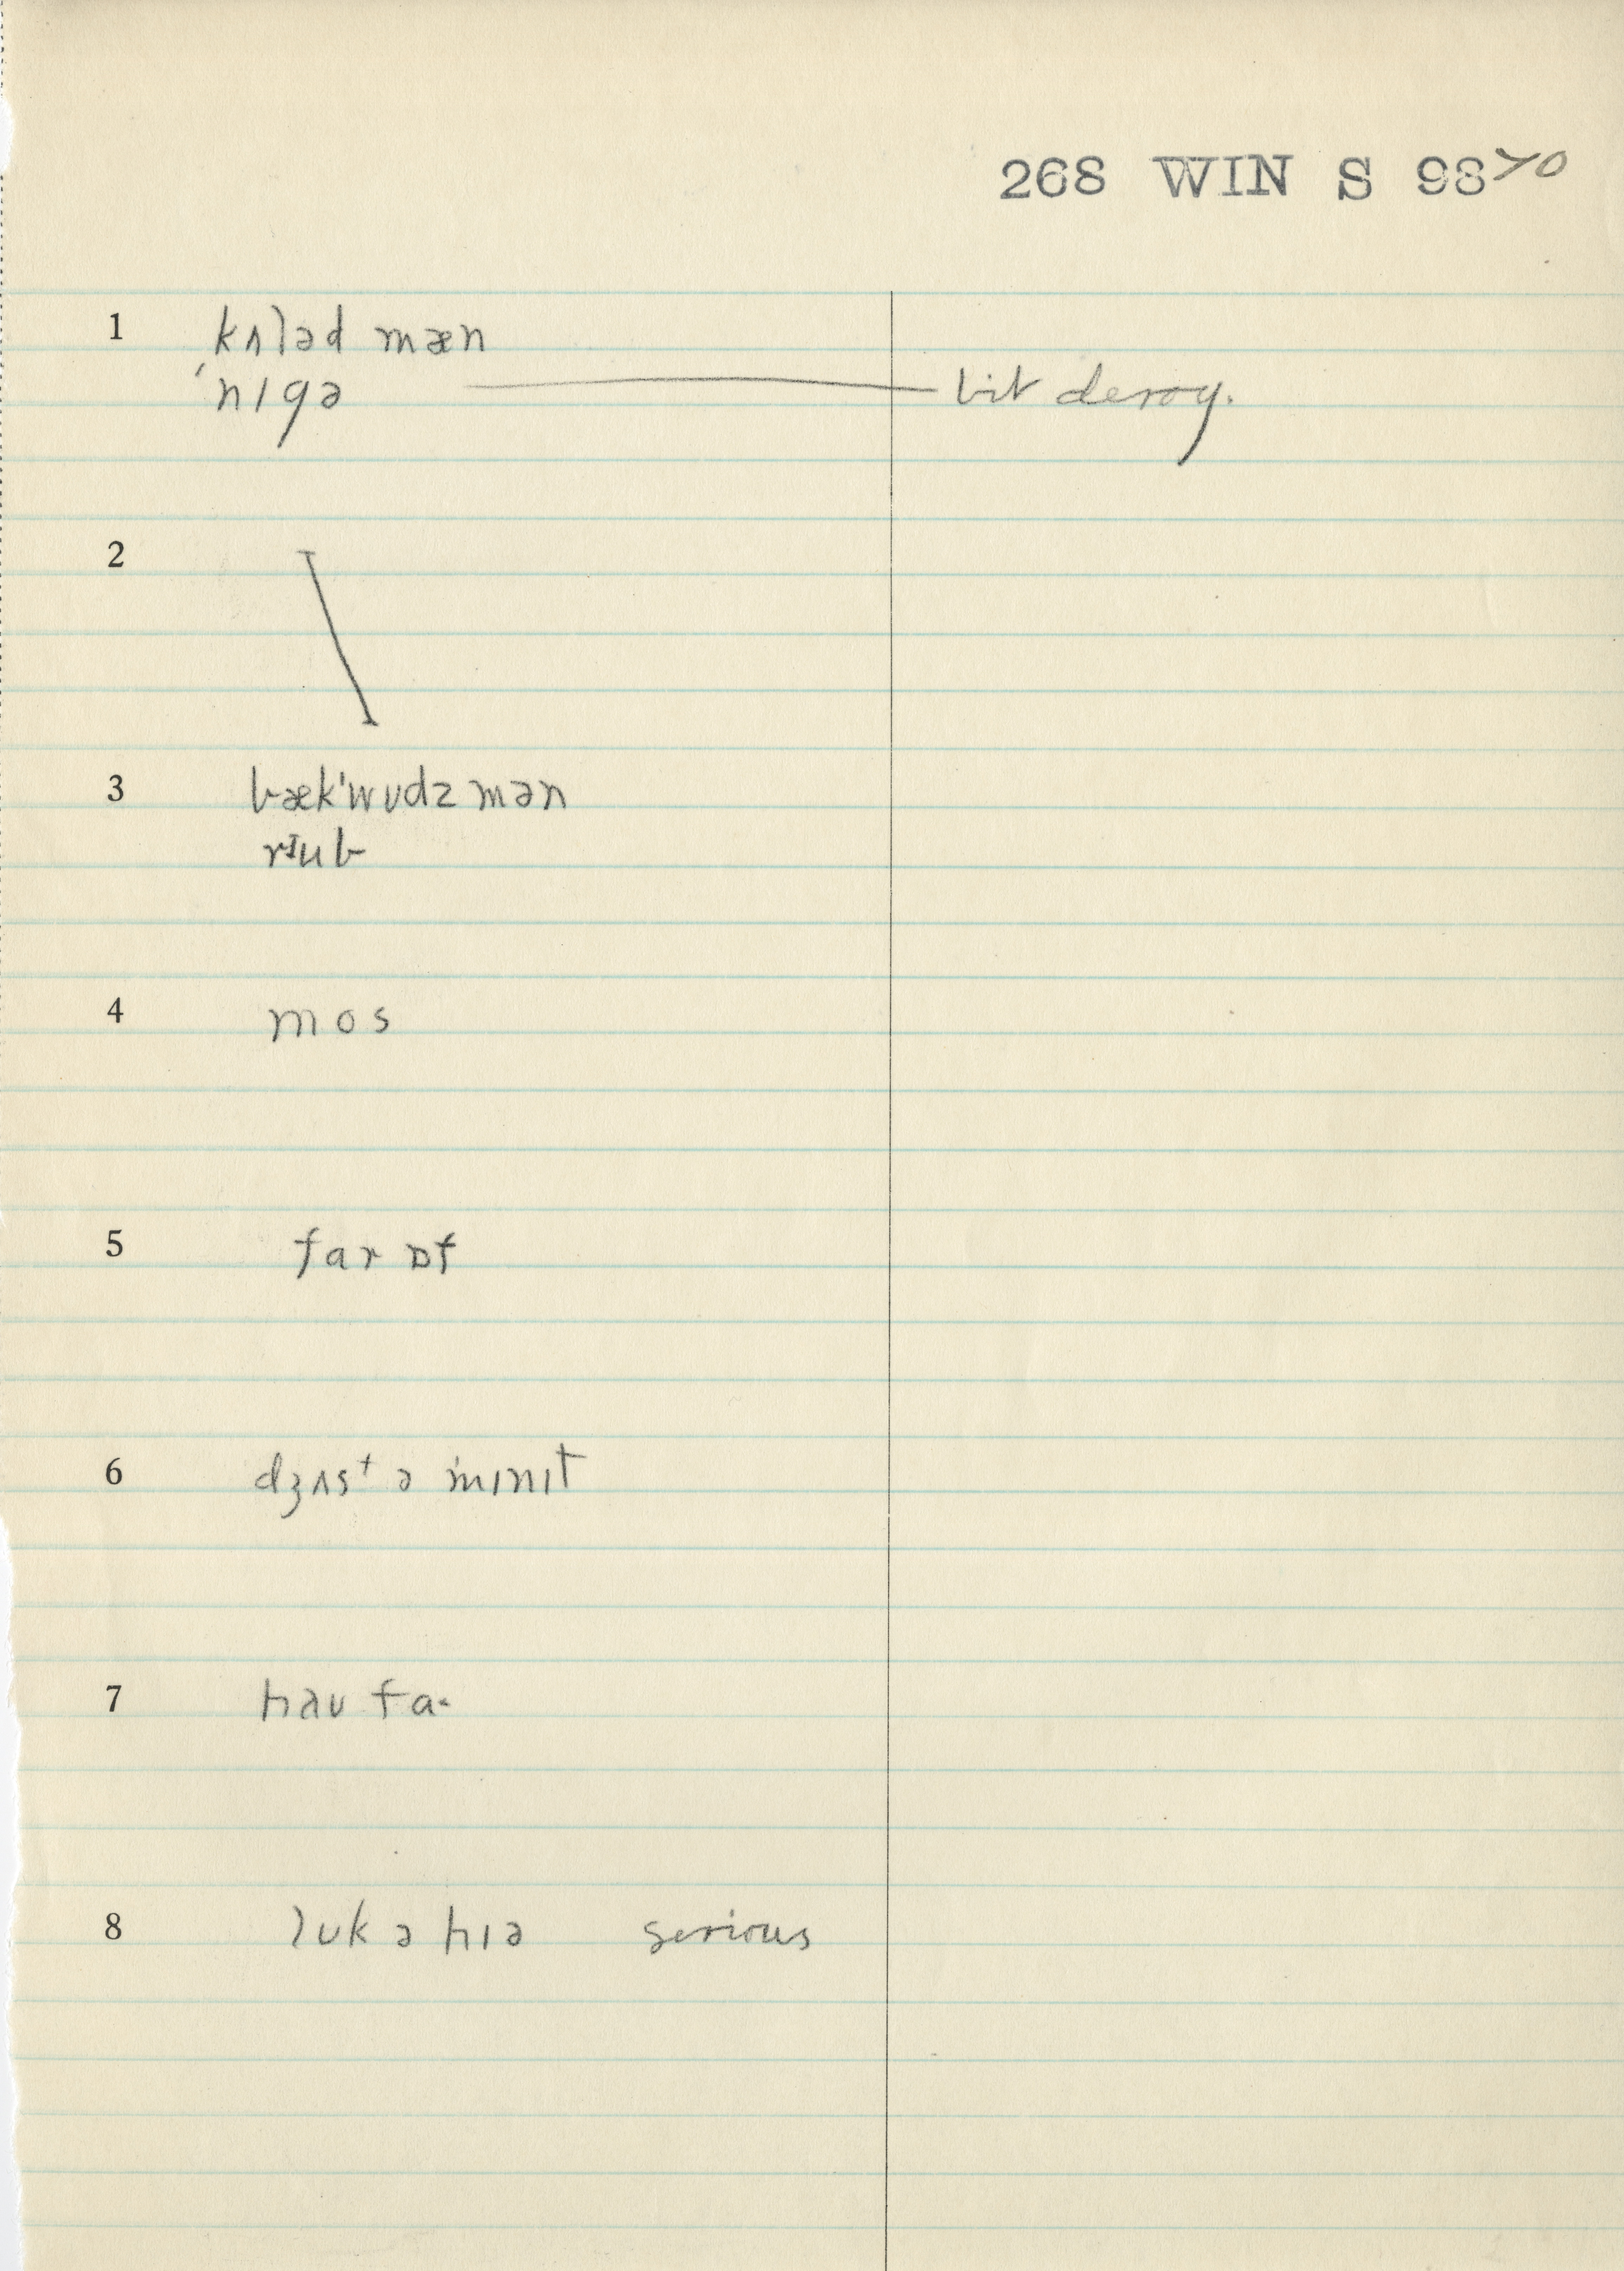 268 WIN S 9870
1 kʌləd mæn
ˈnɪgə bit derog.
2
3 bækˈwʊdzmən
rɪub
4 mos
5 far ɒf
6 dʒʌst ə mɪnɪt
7 haʊ fa·
8 lʊk ə hɪə serious